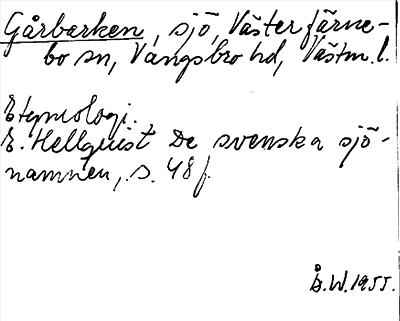 Gårbarken, sjö, Väster Färne-
bo sn, Vangsbro hd, Västm. l.
Etymologi.
E. Hellquist, De svenska sjö-
namnen, s. 48 f.
Å.W.1955.